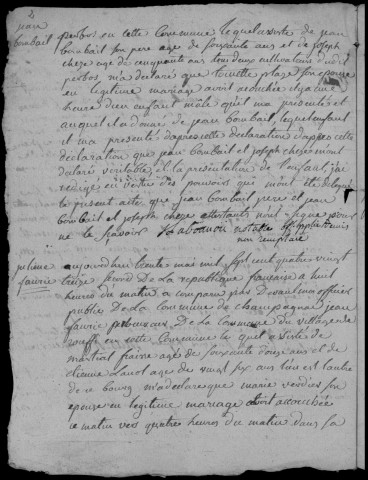 2
jean
boubail
perbos en cette commune lequel assisté de jean
boubail son pere age de soixante ans et de joseph
cheze age de cinquante ans tous deux cultivateurs dudit
perbos, m'a declaré que toinette plaze son epouse
en legitime mariage avoit acouchée il y a une
heure d'un enfant mâle qu'il m'a presenté et
auquel il a donné de jean boubail, lequel enfant
il m'a presenté d'après cette declaration d'après cette
declaration que jean boubail et joseph cheze m'ont
declaré veritable, et la presentation de l'enfant, j'ai
redigé en vertu des pouvoirs que m'ont delegué
le present acte que jean boubail pere et jean
boubail et joseph cheze attestants n'ont signé pour
ne le sçavoir
juliene
faurie
aujourdhuy trente mai mil sept cent quatre vingt
treize second De la republique francaise a huit
heures du matin a comparu par Devant moi officier
public De la commune de champagnac jean
faurie De la commune du village de
en cette commune le quel assisté de
martial fraisse age de soixante douze ans et de
etienne age de vingt six ans l'un et l'autre
de ce bourg m'a declare que marie son
epouse en legitime mariage etoit accouchée
ce matin vers quatre heures du matin dans sa